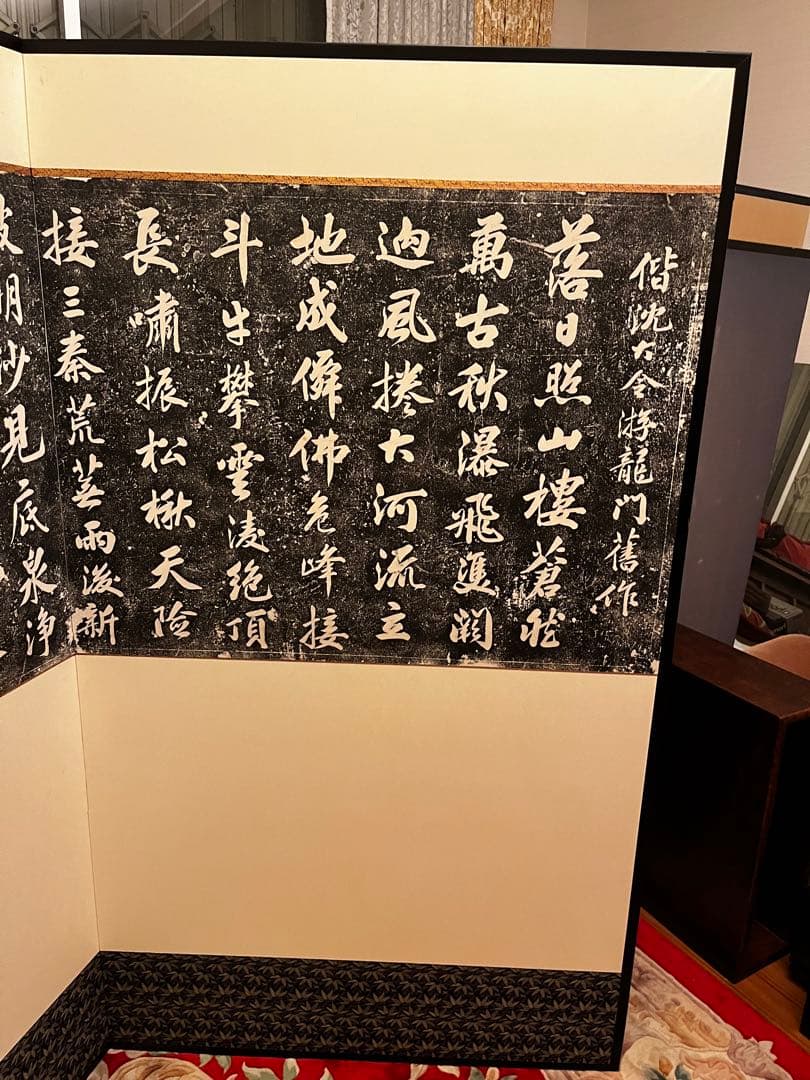 偕沈大令游龍門舊作
落日照山樓蒼然
萬古秋瀑飛澗
迥風捲大河流立
地成僊佛危峰接
斗牛攀雲淩絕頂
長嘯振松楸天險
接三秦荒雨後新
明沙見底泉淨